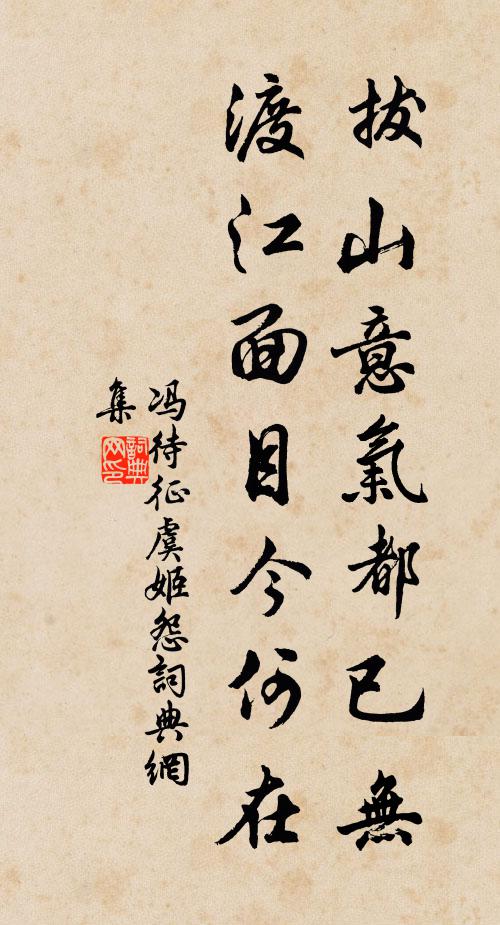 拔山意氣都已無
渡江面目今何在
冯待征虞姬怨詞典網
集
詞典
网印